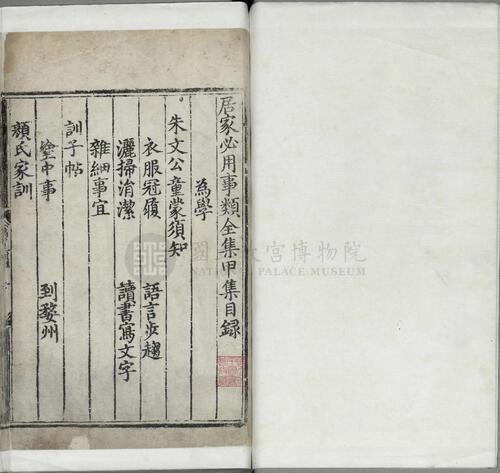 居家必用事類全集甲集目録
為學
朱文公童蒙須知
衣服冠履 語言步趨
灑掃涓潔 讀書寫文字
雜細事宜
訓子帖
塗中事 到婺州
顏氏家訓
NATIONAL PALACE MUSEUM